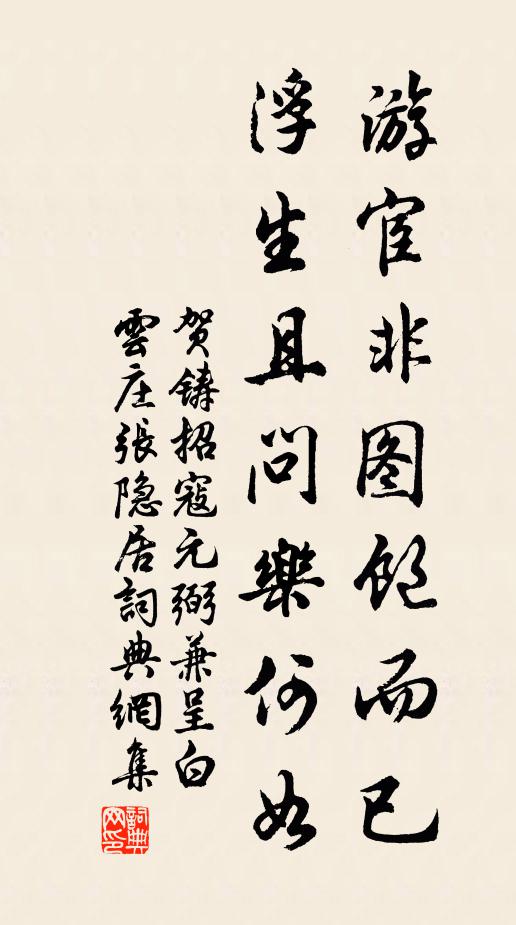 游宦非图饱而已
浮生且问樂何如
贺铸招寇元弼兼呈白
雲庄張隐居詞典網集
詞典网印